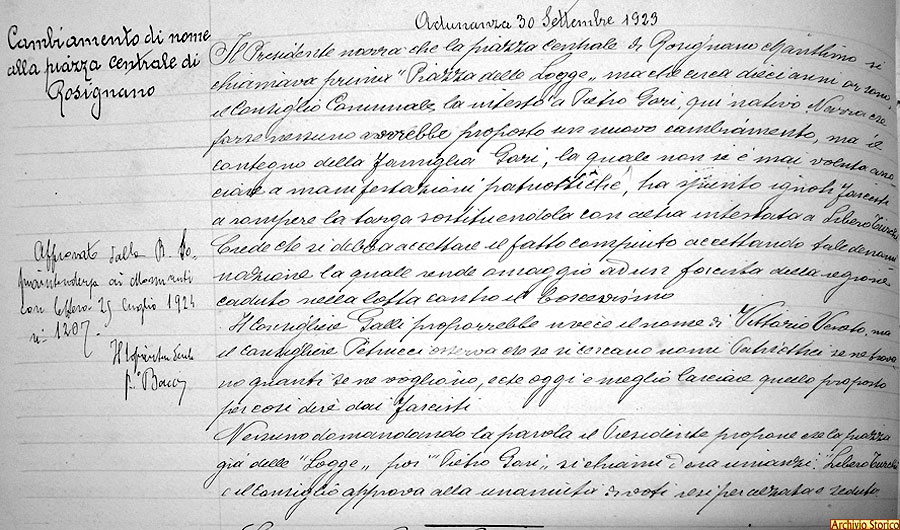 Adunanza 30 Settembre 1923
Cambiamento di nome
alla piazza centrale di
Rosignano
Il Presidente narra che la piazza centrale di Rosignano Marittimo si
chiamava prima "Piazza delle Logge" ma che circa dieci anni or sono,
il Consiglio Comunale la intestò a Pietro Gori, qui nativo Narra che
forse nessuno avrebbe proposto un nuovo cambiamento, ma il
contegno della famiglia Gori, la quale non si è mai voluta asso
ciare a manifestazioni patriottiche, ha spinto ignoti fascisti
a rompere la targa sostituendola con altra intestata a Libero Turchi
Crede che si debba accettare il fatto compiuto accettando tale denomi
nazione la quale rende omaggio ad un fascista della regione
caduto nella lotta contro il
Il Consigliere Galli proporrebbe invece il nome di Vittorio Veneto, ma
il Consigliere Petrucci osserva che se si cercano nomi Patriottici se ne trova
no quanti se ne vogliono, e che oggi è meglio lasciare quello proposto
per così dire dai fascisti
Nessuno domandando la parola il Presidente propone che la piazza
già delle "Logge" poi "Pietro Gori" si chiami d'ora innanzi "Libero Turchi
e il Consiglio approva alla unanimità di voti resi per alzata e seduta.
Approvato dalla R. So-
printendenza ai Monumenti
con lettera 25 luglio 1924
n. 1207.
Archivio Storico